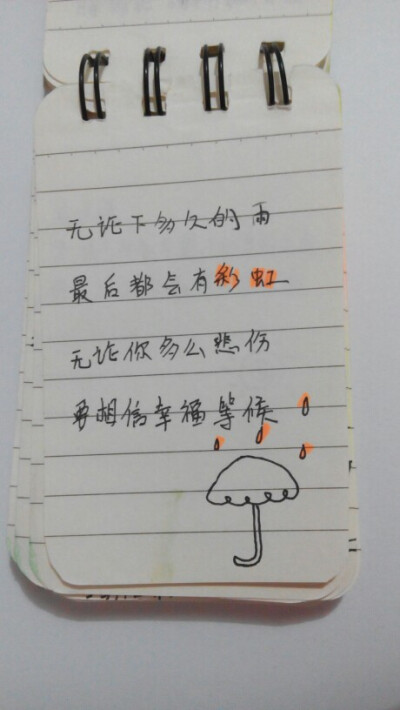 无论下多久的雨
最后都会有彩虹
无论你多么悲伤
要相信幸福等候